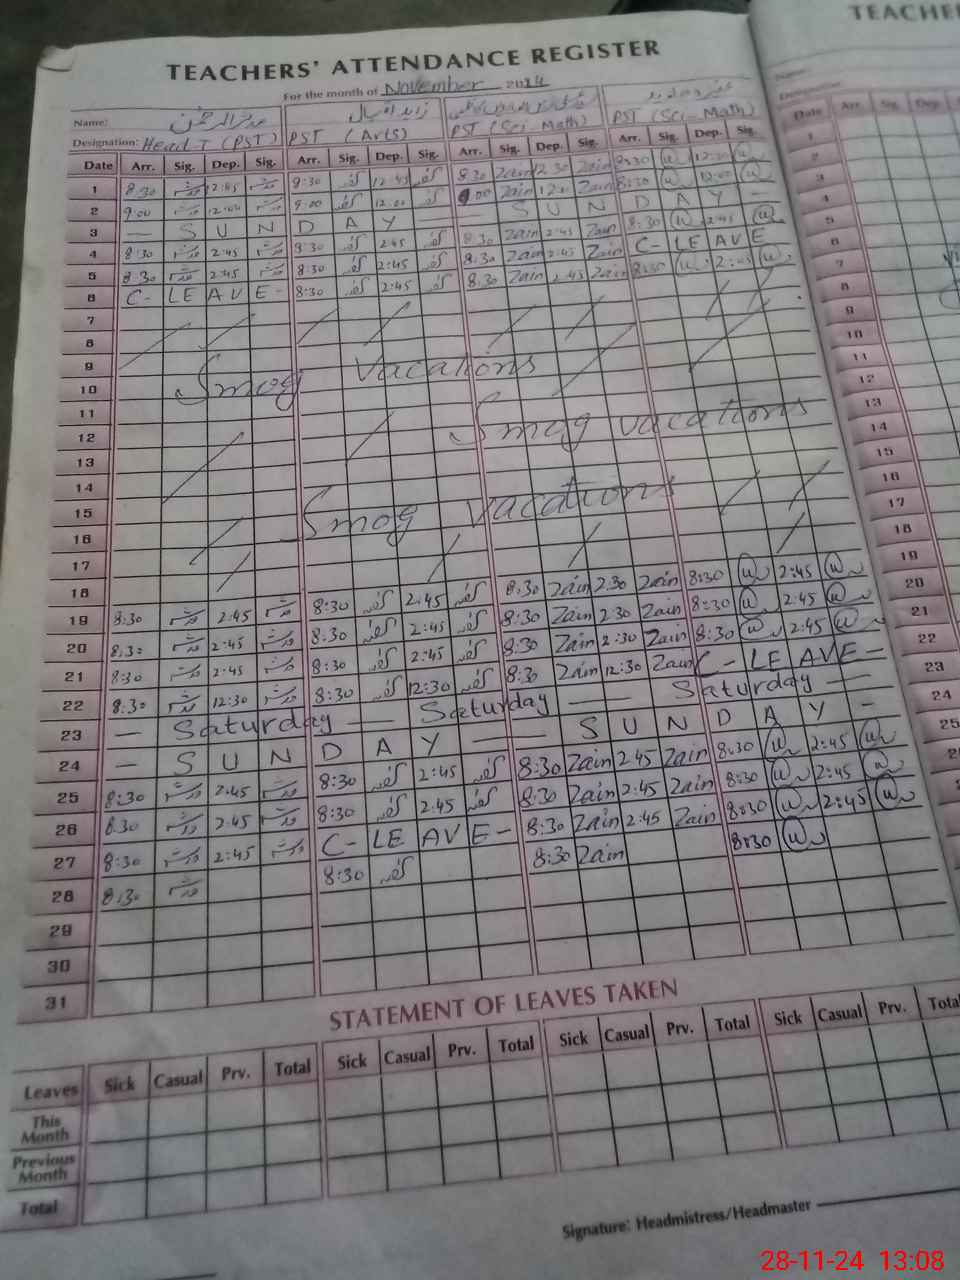 TEACHERS' ATTENDANCE REGISTER
For the month of November 2024
Name:
Designation: Head-T (PST) PST (Arts) PST (Sci-Math) PST (Sci-Math)
Date Arr. Sig. Dep. Sig. Arr. Sig. Dep. Sig. Arr. Sig. Dep. Sig. Arr. Sig. Dep. Sig.
1 8:30 12:45 8:30 12:45 8:30 Zain 12:30 Zain 8:30
2 9:00 12:00 9:00 12:00 9:00 Zain 12:00 Zain 8:30 12:00
3 — S U N D A Y — — S U N D A Y —
4 8:30 2:45 8:30 2:45 8:30 Zain 2:45 Zain 8:30 2:45
5 8:30 2:45 8:30 2:45 8:30 Zain 2:45 Zain C-LEAVE
6 C-LEAVE- 8:30 2:45 8:30 Zain 2:45 Zain 8:30 2:45
7
8
9 Smog Vacations
10
11 Smog vacations
12
13
14
15 Smog vacations
16
17
18
19 8:30 2:45 8:30 2:45 8:30 Zain 2:30 Zain 8:30 2:45
20 8:30 2:45 8:30 2:45 8:30 Zain 2:30 Zain 8:30 2:45
21 8:30 2:45 8:30 2:45 8:30 Zain 2:30 Zain 8:30 2:45
22 8:30 12:30 8:30 12:30 8:30 Zain 12:30 Zain C-LEAVE-
23 — Saturday — Saturday — Saturday —
24 — S U N D A Y — — S U N D A Y —
25 8:30 2:45 8:30 2:45 8:30 Zain 2:45 Zain 8:30 2:45
26 8:30 2:45 8:30 2:45 8:30 Zain 2:45 Zain 8:30 2:45
27 8:30 2:45 C-LEAVE- 8:30 Zain 2:45 Zain 8:30 2:45
28 8:30 8:30 8:30 Zain 8:30
29
30
31
STATEMENT OF LEAVES TAKEN
Leaves Sick Casual Prv. Total Sick Casual Prv. Total Sick Casual Prv. Total Sick Casual Prv. Total
This Month
Previous Month
Total
Signature: Headmistress/Headmaster
TEACHE
Name:
Designation:
Date Arr. Sig. Dep.
1
2
3
4
5
6
7
8
9
10
11
12
13
14
15
16
17
18
19
20
21
22
23
24
25
28-11-24 13:08